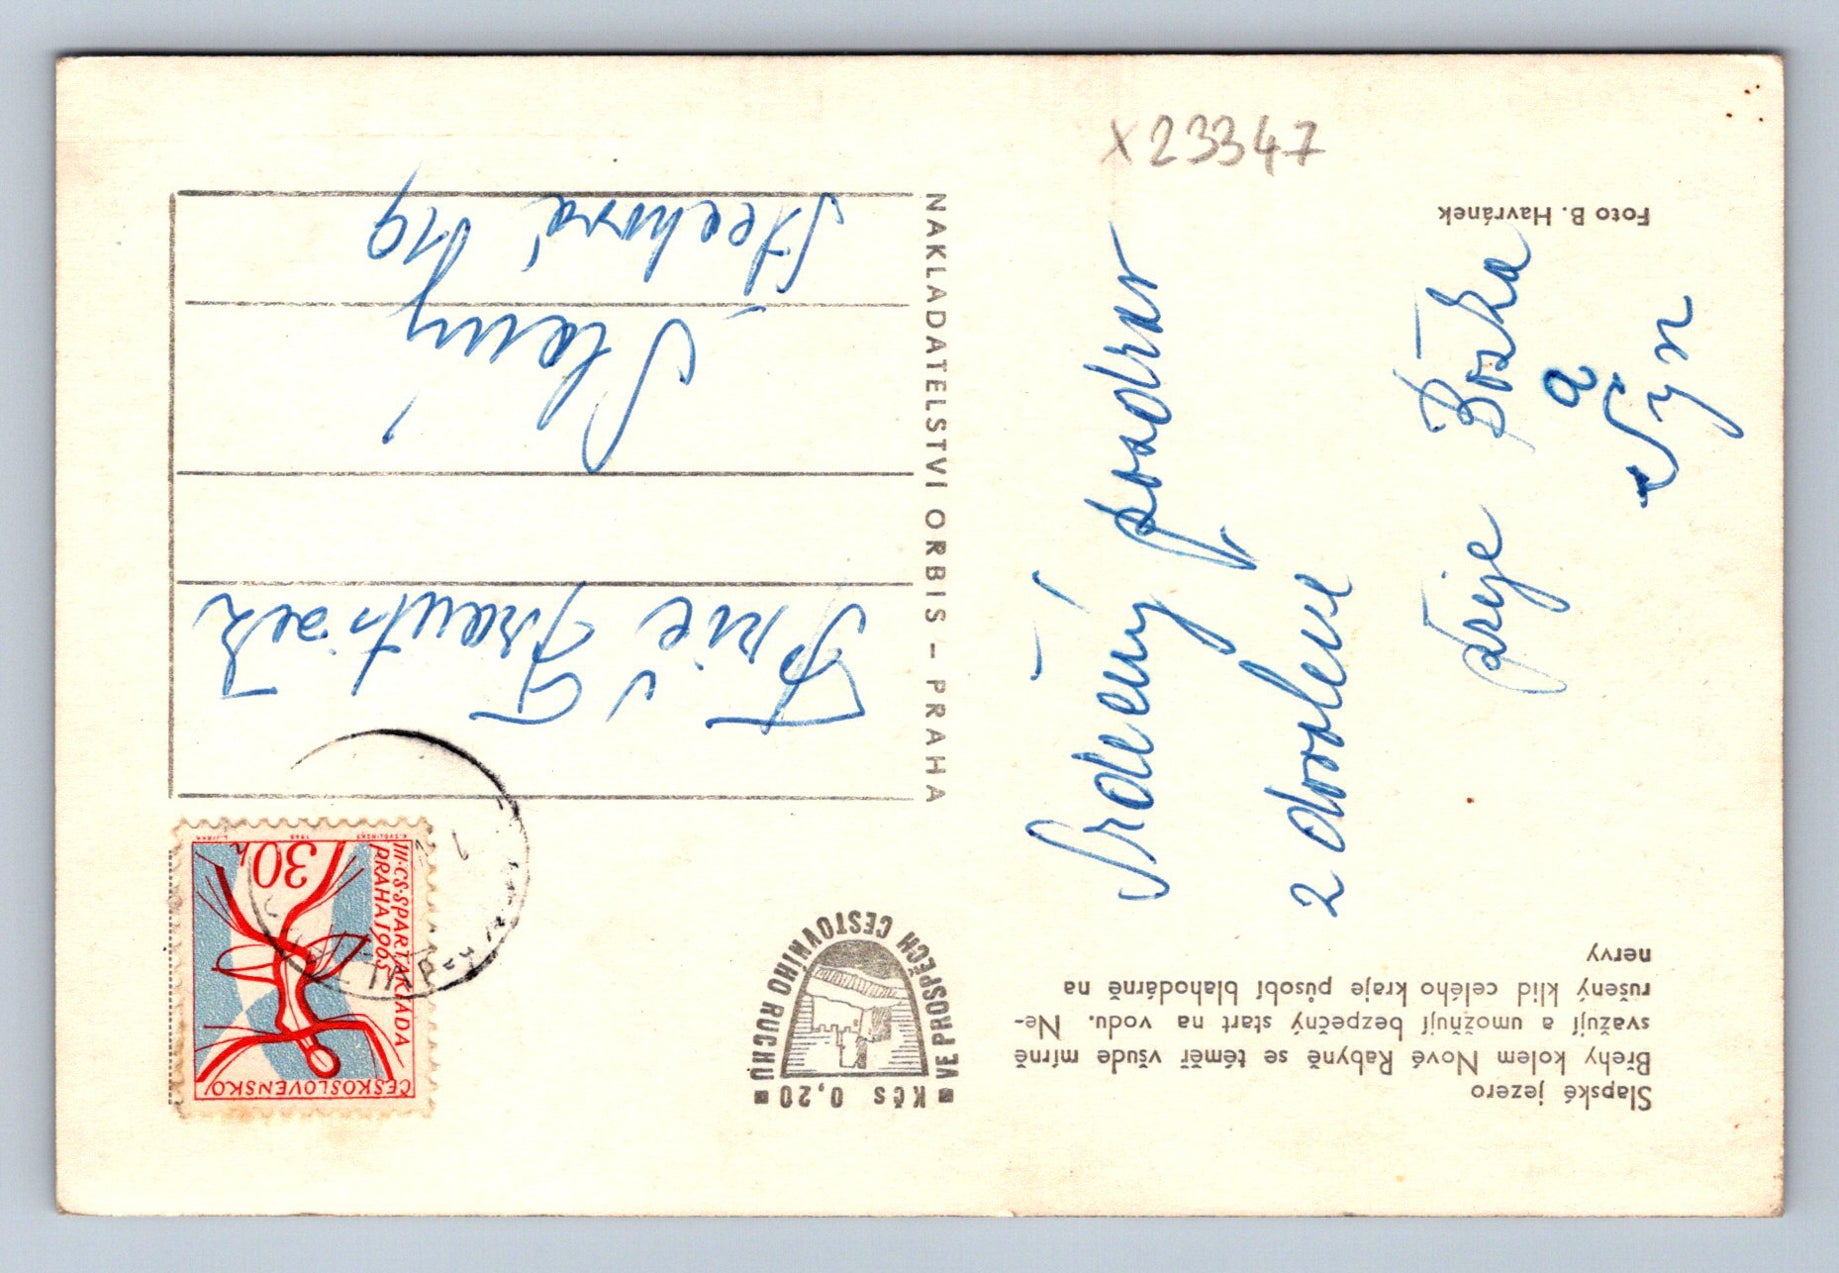 Slapské jezero
Břehy kolem Nové Rabyně se téměř všude mírně
svažují a umožnují bezpečný start na vodu. Ne-
rušený klid celého kraje působí blahodárně na
nervy
Srdečný pozdrav
z dovolené
přeje Božka
a
Syn
Foto B. Havránek
X23347
■ Kčs 0,20 ■
VE PROSPĚCH CESTOVNÍHO RUCHU
NAKLADATELSTVÍ ORBIS – PRAHA
ČESKOSLOVENSKO
III·CS·SPARTAKIÁDA
PRAHA 1965
30h
František
Slaný